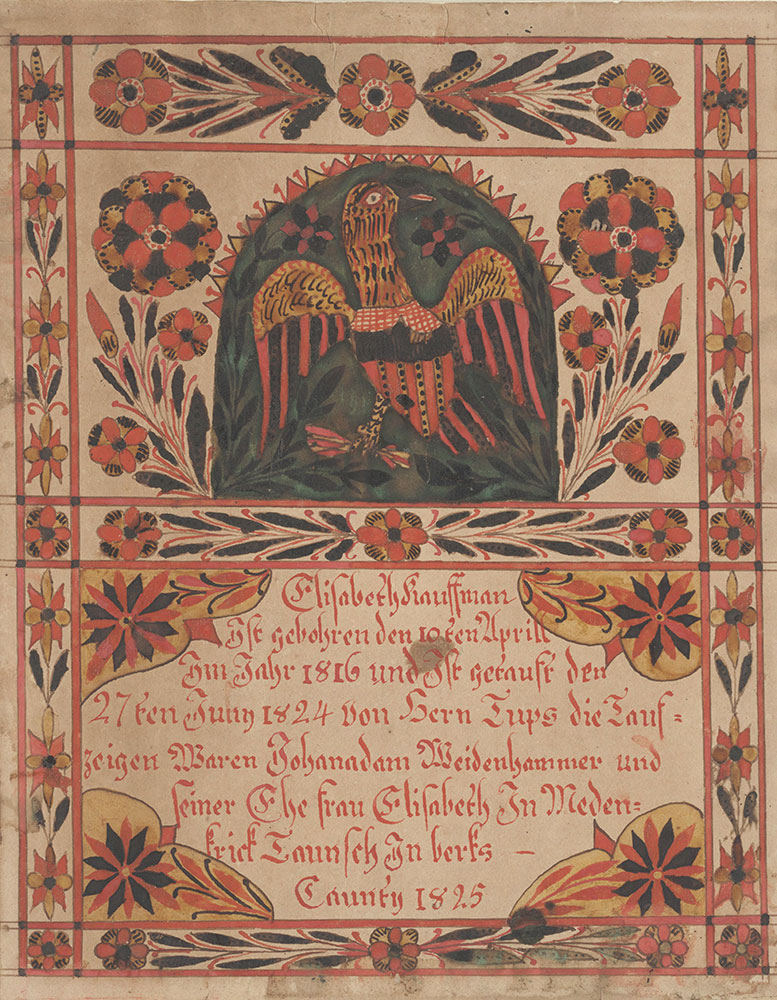 Elisabeth Kauffman
Ist gebohren den 10ten Aprill
Im Jahr 1816 und Ist getauft den
27ten Juny 1824 von Hern Tups die Tauf=
zeigen Waren Johanadam Weidenhammer und
seiner Ehe frau Elisabeth In Meden=
krick Taunsch In berks —
Caunty 1825